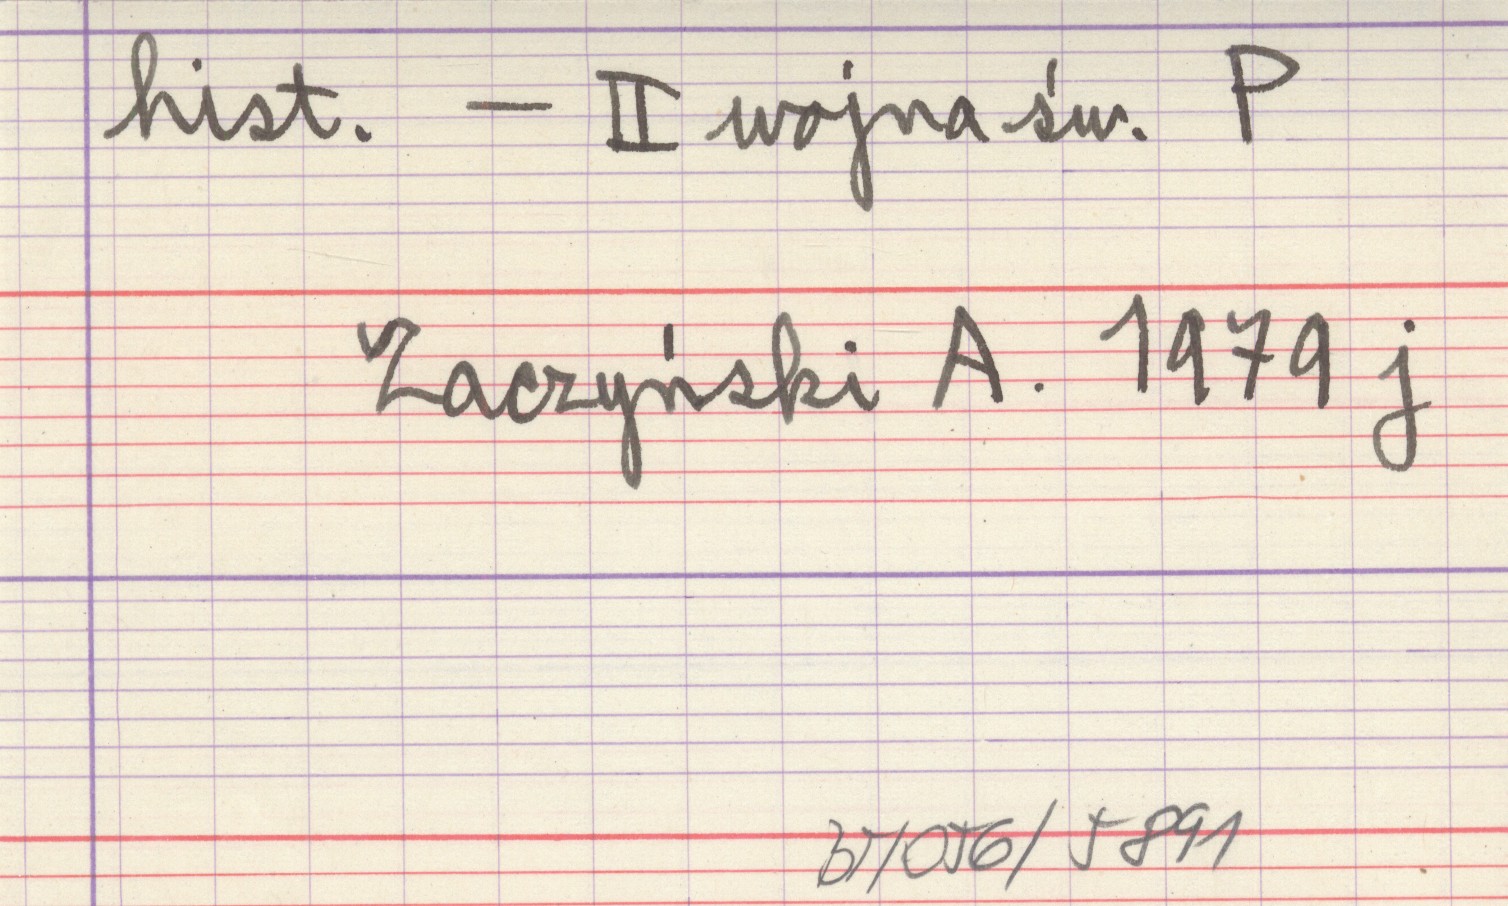 hist. — II wojna św. P
Zaczyński A. 1979 j
/056/5891